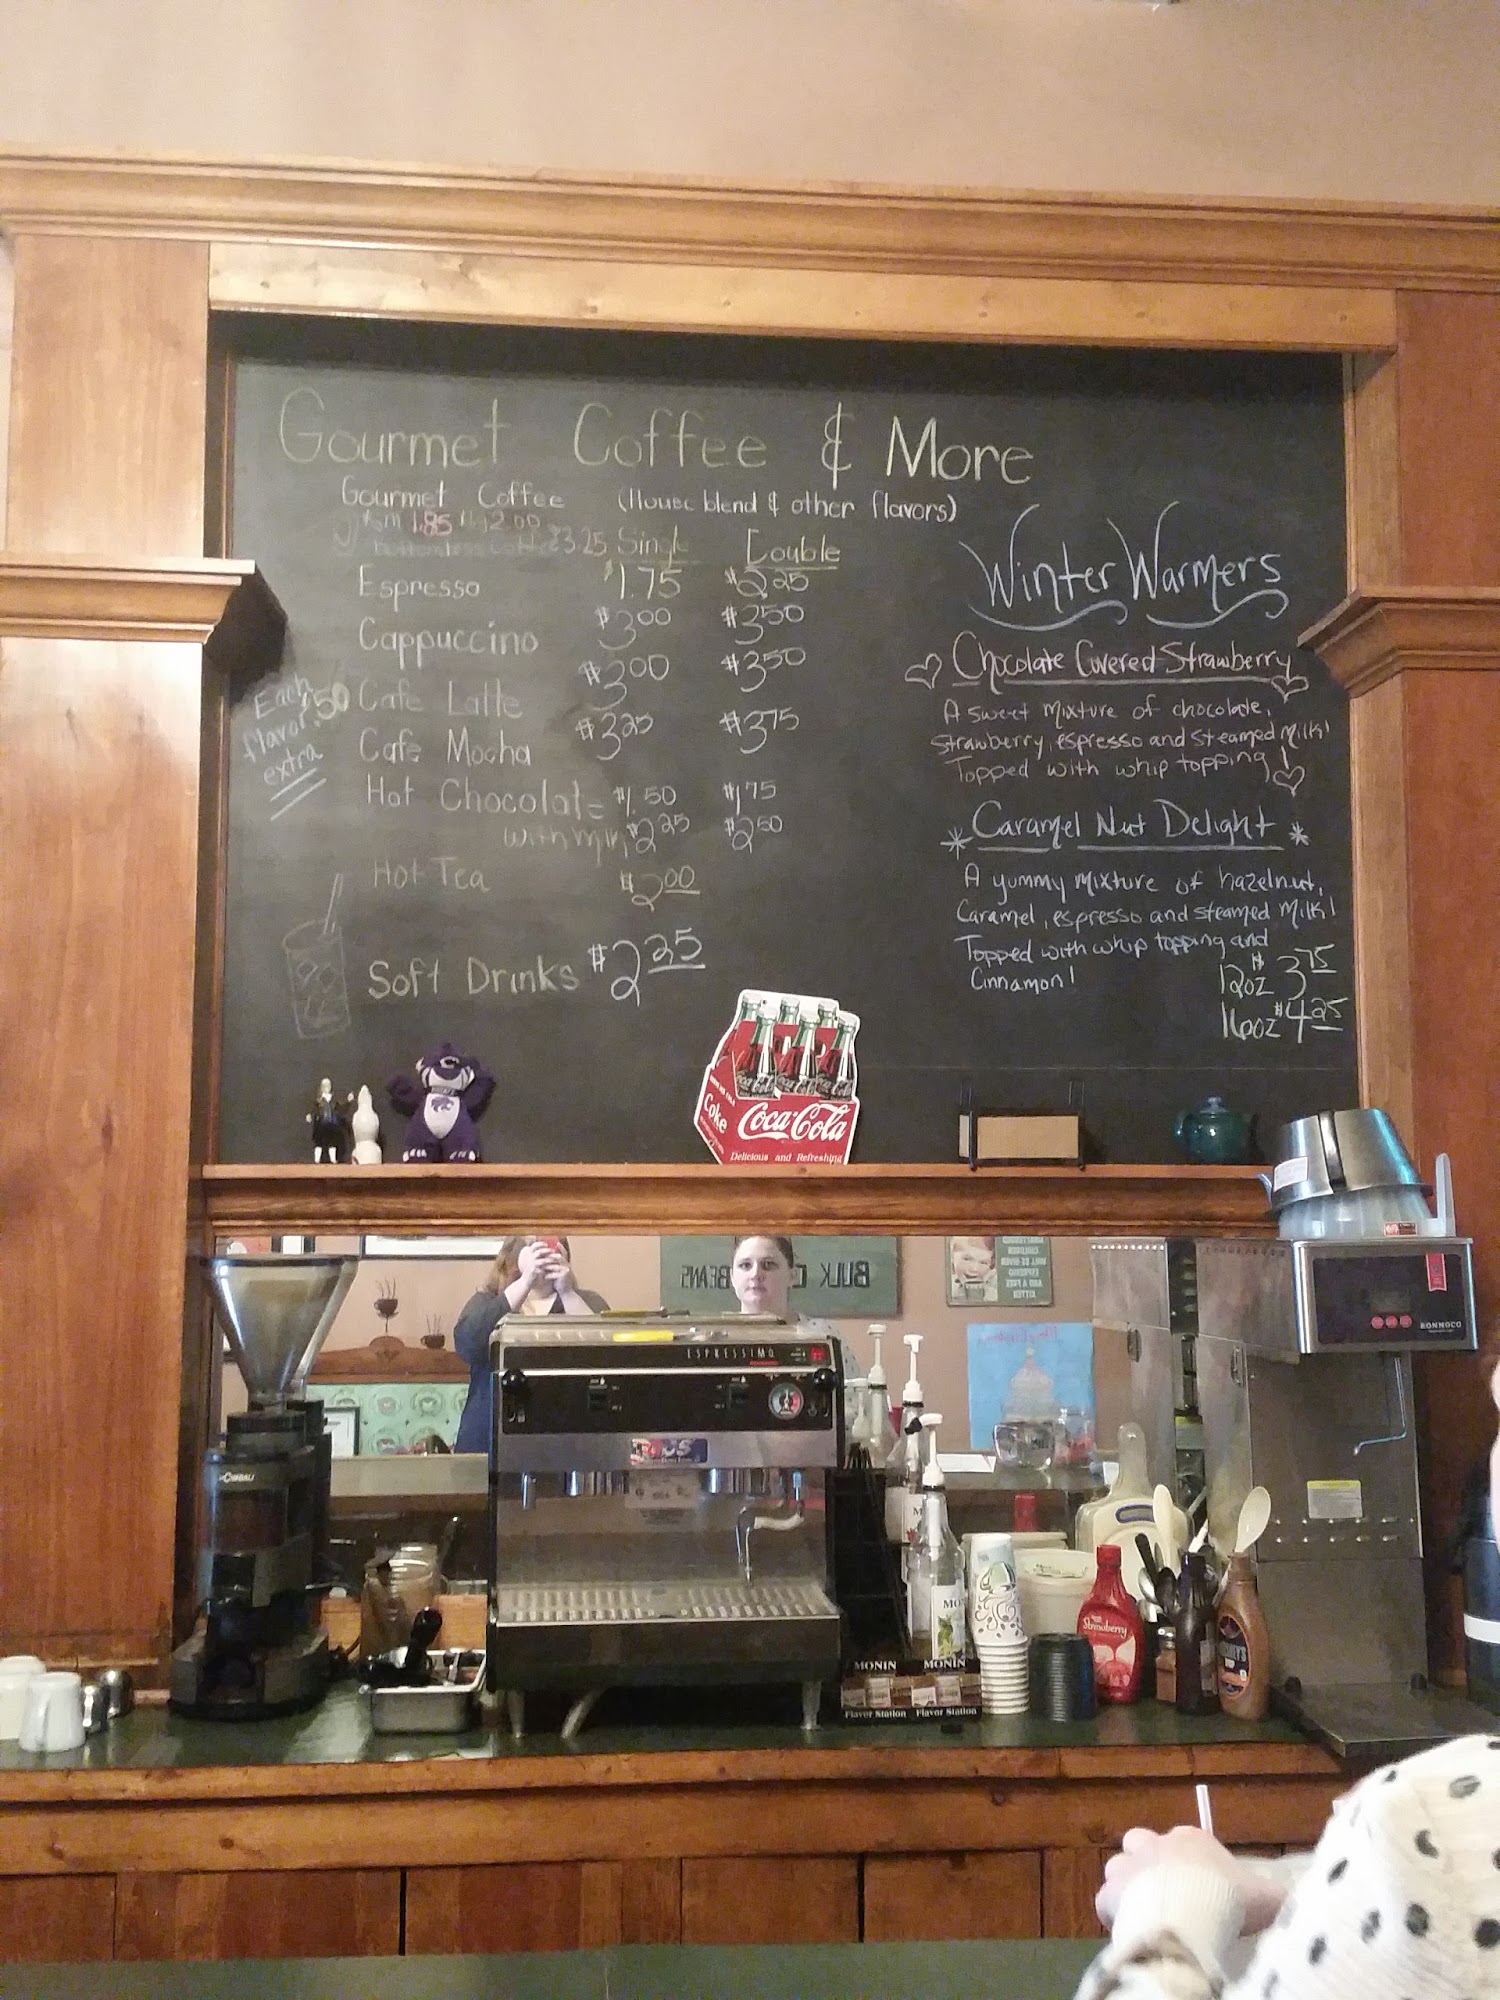 Gourmet Coffee & More
Gourmet Coffee (House blend & other flavors)
sm 1.85 2.00
bottomless $3.25 Single Double
Espresso $1.75 $2.25
Cappuccino $3.00 $3.50
Cafe Latte $3.00 $3.50
Cafe Mocha $3.25 $3.75
Hot Chocolate $1.50 $1.75
with $2.25 $2.50
Hot Tea $2.00
Soft Drinks $2.25
Each
flavor .50
extra
Winter Warmers
Chocolate Covered Strawberry
A sweet mixture of chocolate,
strawberry, espresso and steamed milk!
Topped with whip topping!
Caramel Nut Delight
A yummy mixture of hazelnut,
Caramel, espresso and steamed milk!
Topped with whip topping and
Cinnamon!
12oz $3.75
16oz $4.25
Coke
Coca-Cola
Delicious and Refreshing
BULK BEANS
ESPRESSIMO
BUNNOMATIC
MONIN MONIN
Flavor Station Flavor Station
Strawberry
HERSHEY'S